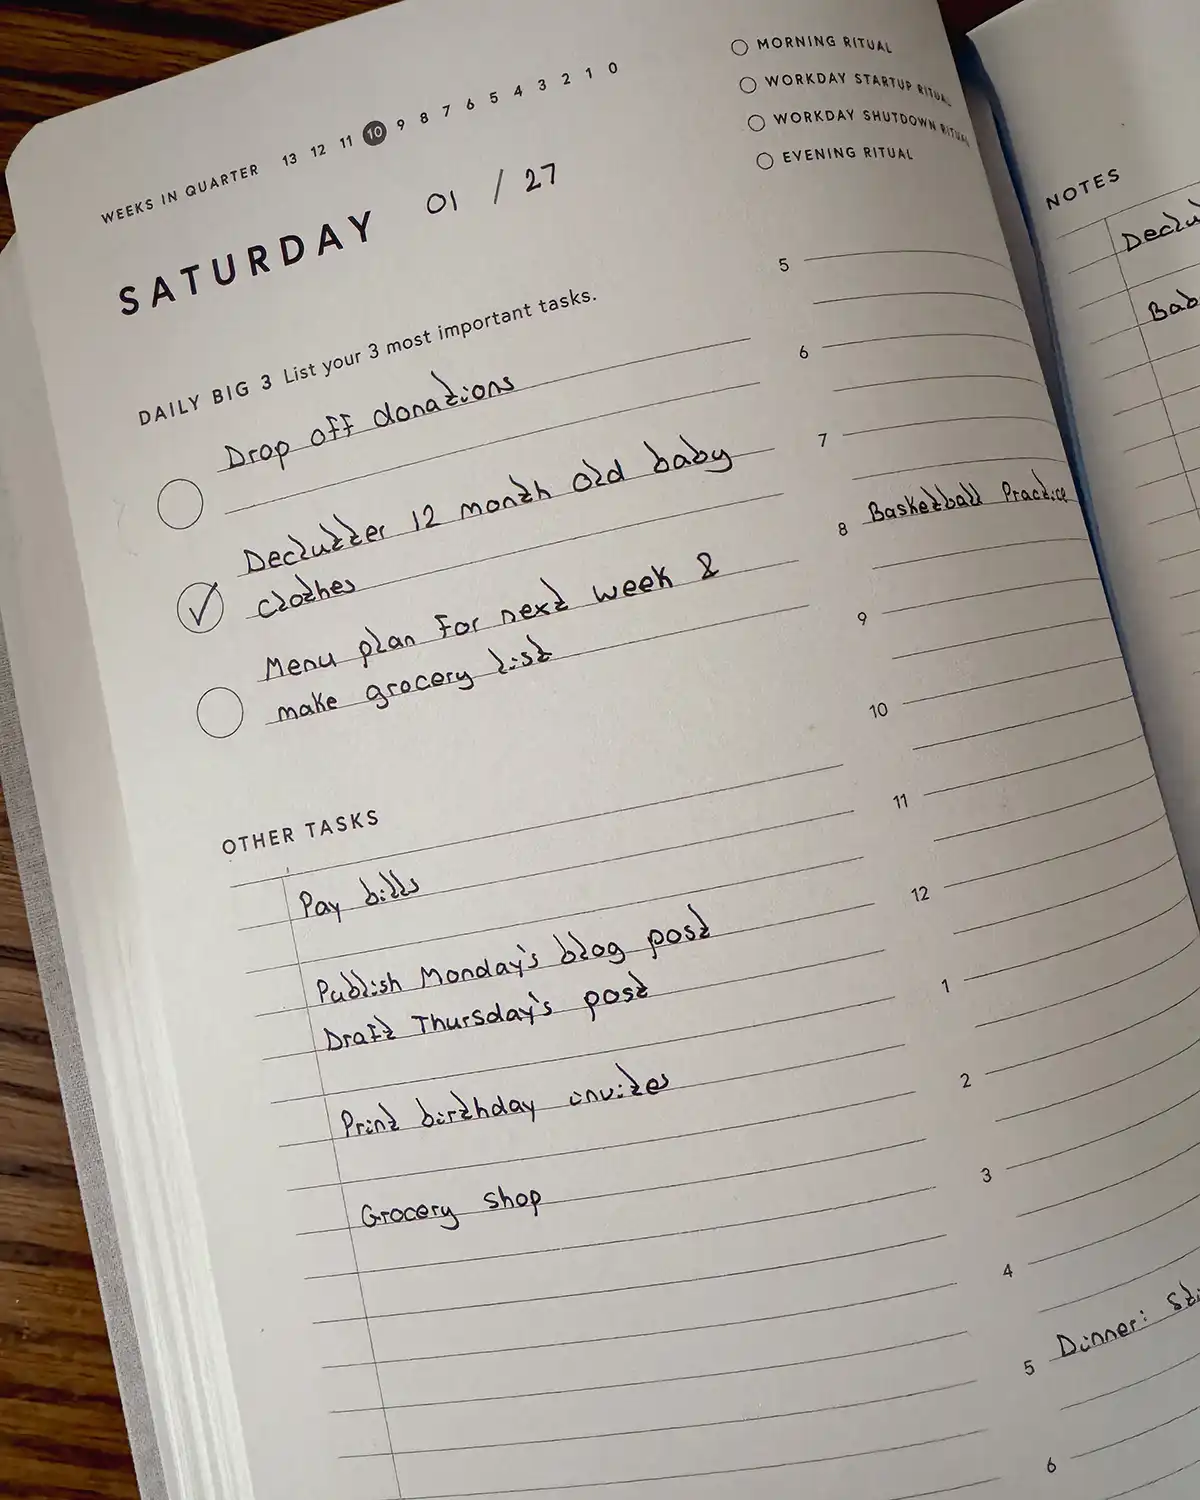 WEEKS IN QUARTER 13 12 11 10 9 8 7 6 5 4 3 2 1 0
SATURDAY 01 / 27
DAILY BIG 3 List your 3 most important tasks.
Drop off donations
Declutter 12 month old baby
clothes
Menu plan for next week &
make grocery list
OTHER TASKS
Pay bills
Publish Monday's blog post
Draft Thursday's post
Print birthday invites
Grocery shop
MORNING RITUAL
WORKDAY STARTUP RITUAL
WORKDAY SHUTDOWN RITUAL
EVENING RITUAL
5
6
7
8 Basketball Practice
9
10
11
12
1
2
3
4
5 Dinner:
6
NOTES